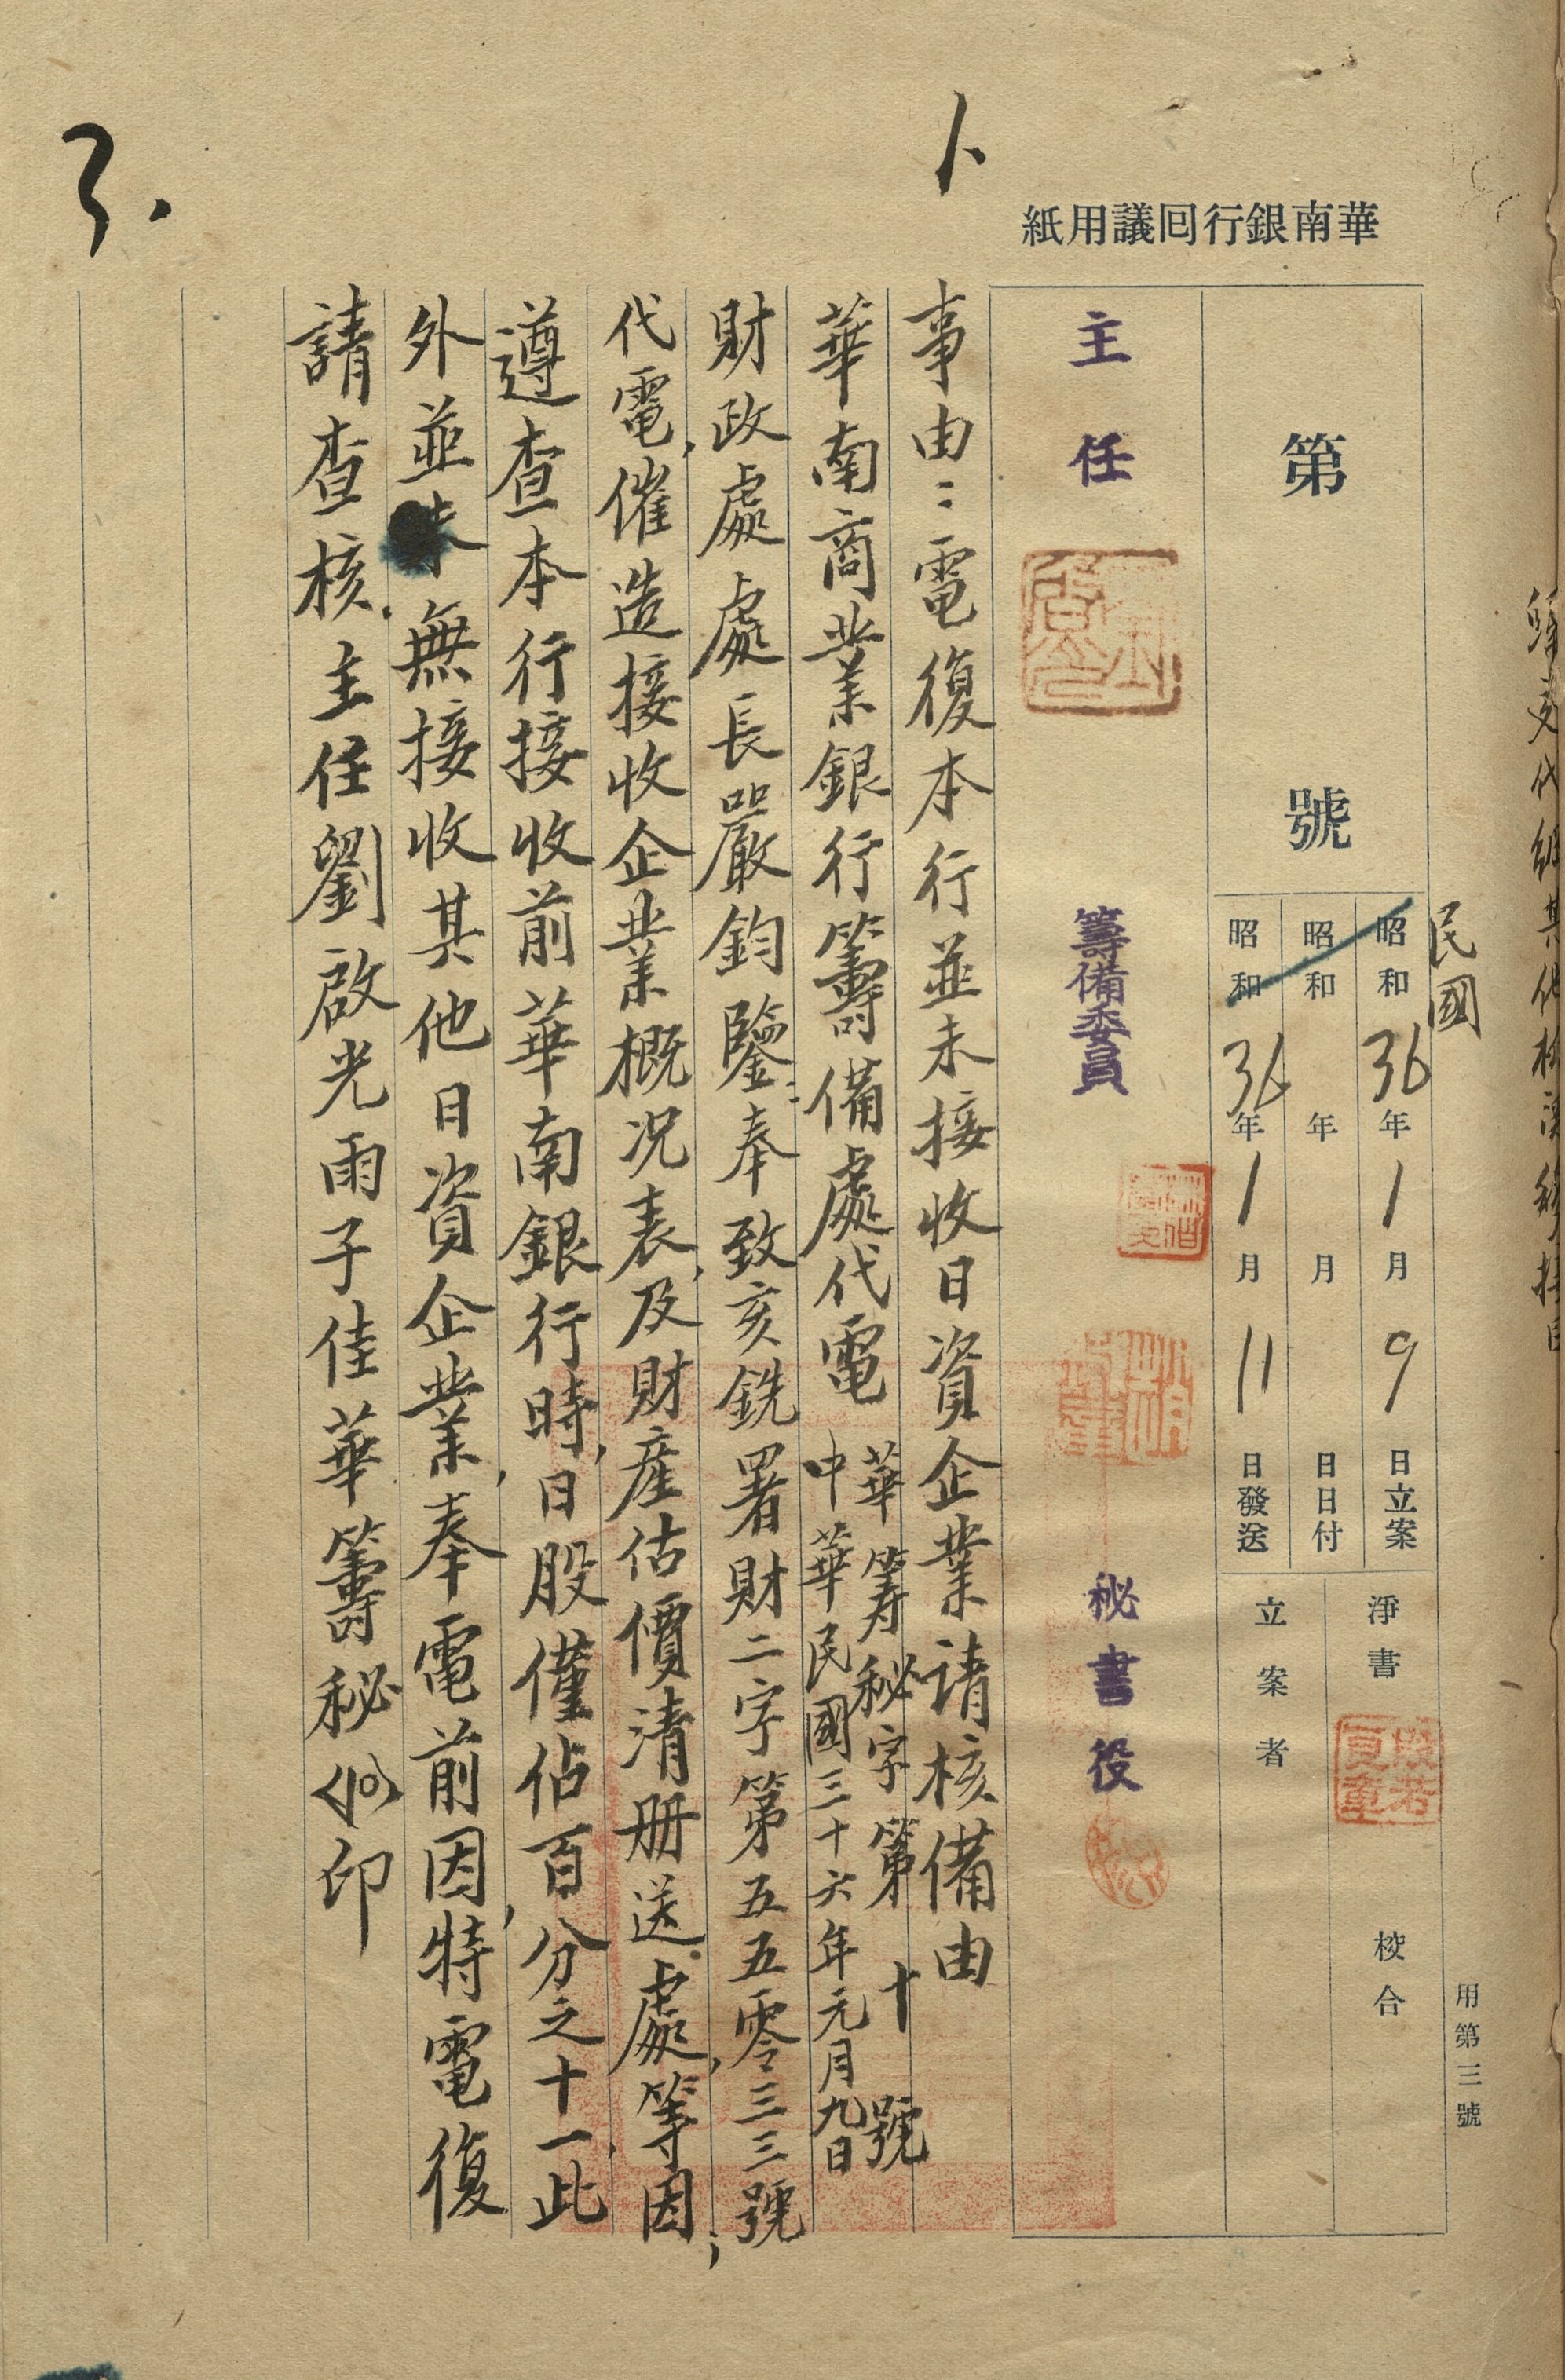 華南銀行囘議用紙
用第三號
民國
第 號
昭和36年1月9日立案
昭和 年 月 日日付
昭和36年1月11日發送
淨書 校合
立案者
主任 籌備委員 秘書役
事由：電復本行並未接收日資企業請核備由
華南商業銀行籌備處代電
華筹秘字第十號
中華民國三十六年元月九日
財政處處長嚴鈞鑒：奉致亥銑署財二字第五五零三三號
代電，催造接收企業概况表，及財產估價清册送處，等因；
遵查本行接收前華南銀行時，日股僅佔百分之十一，此
外並未無接收其他日資企業，奉電前因，特電復
請查核．主任劉啟光雨子佳華籌秘㊞印
1、
3.